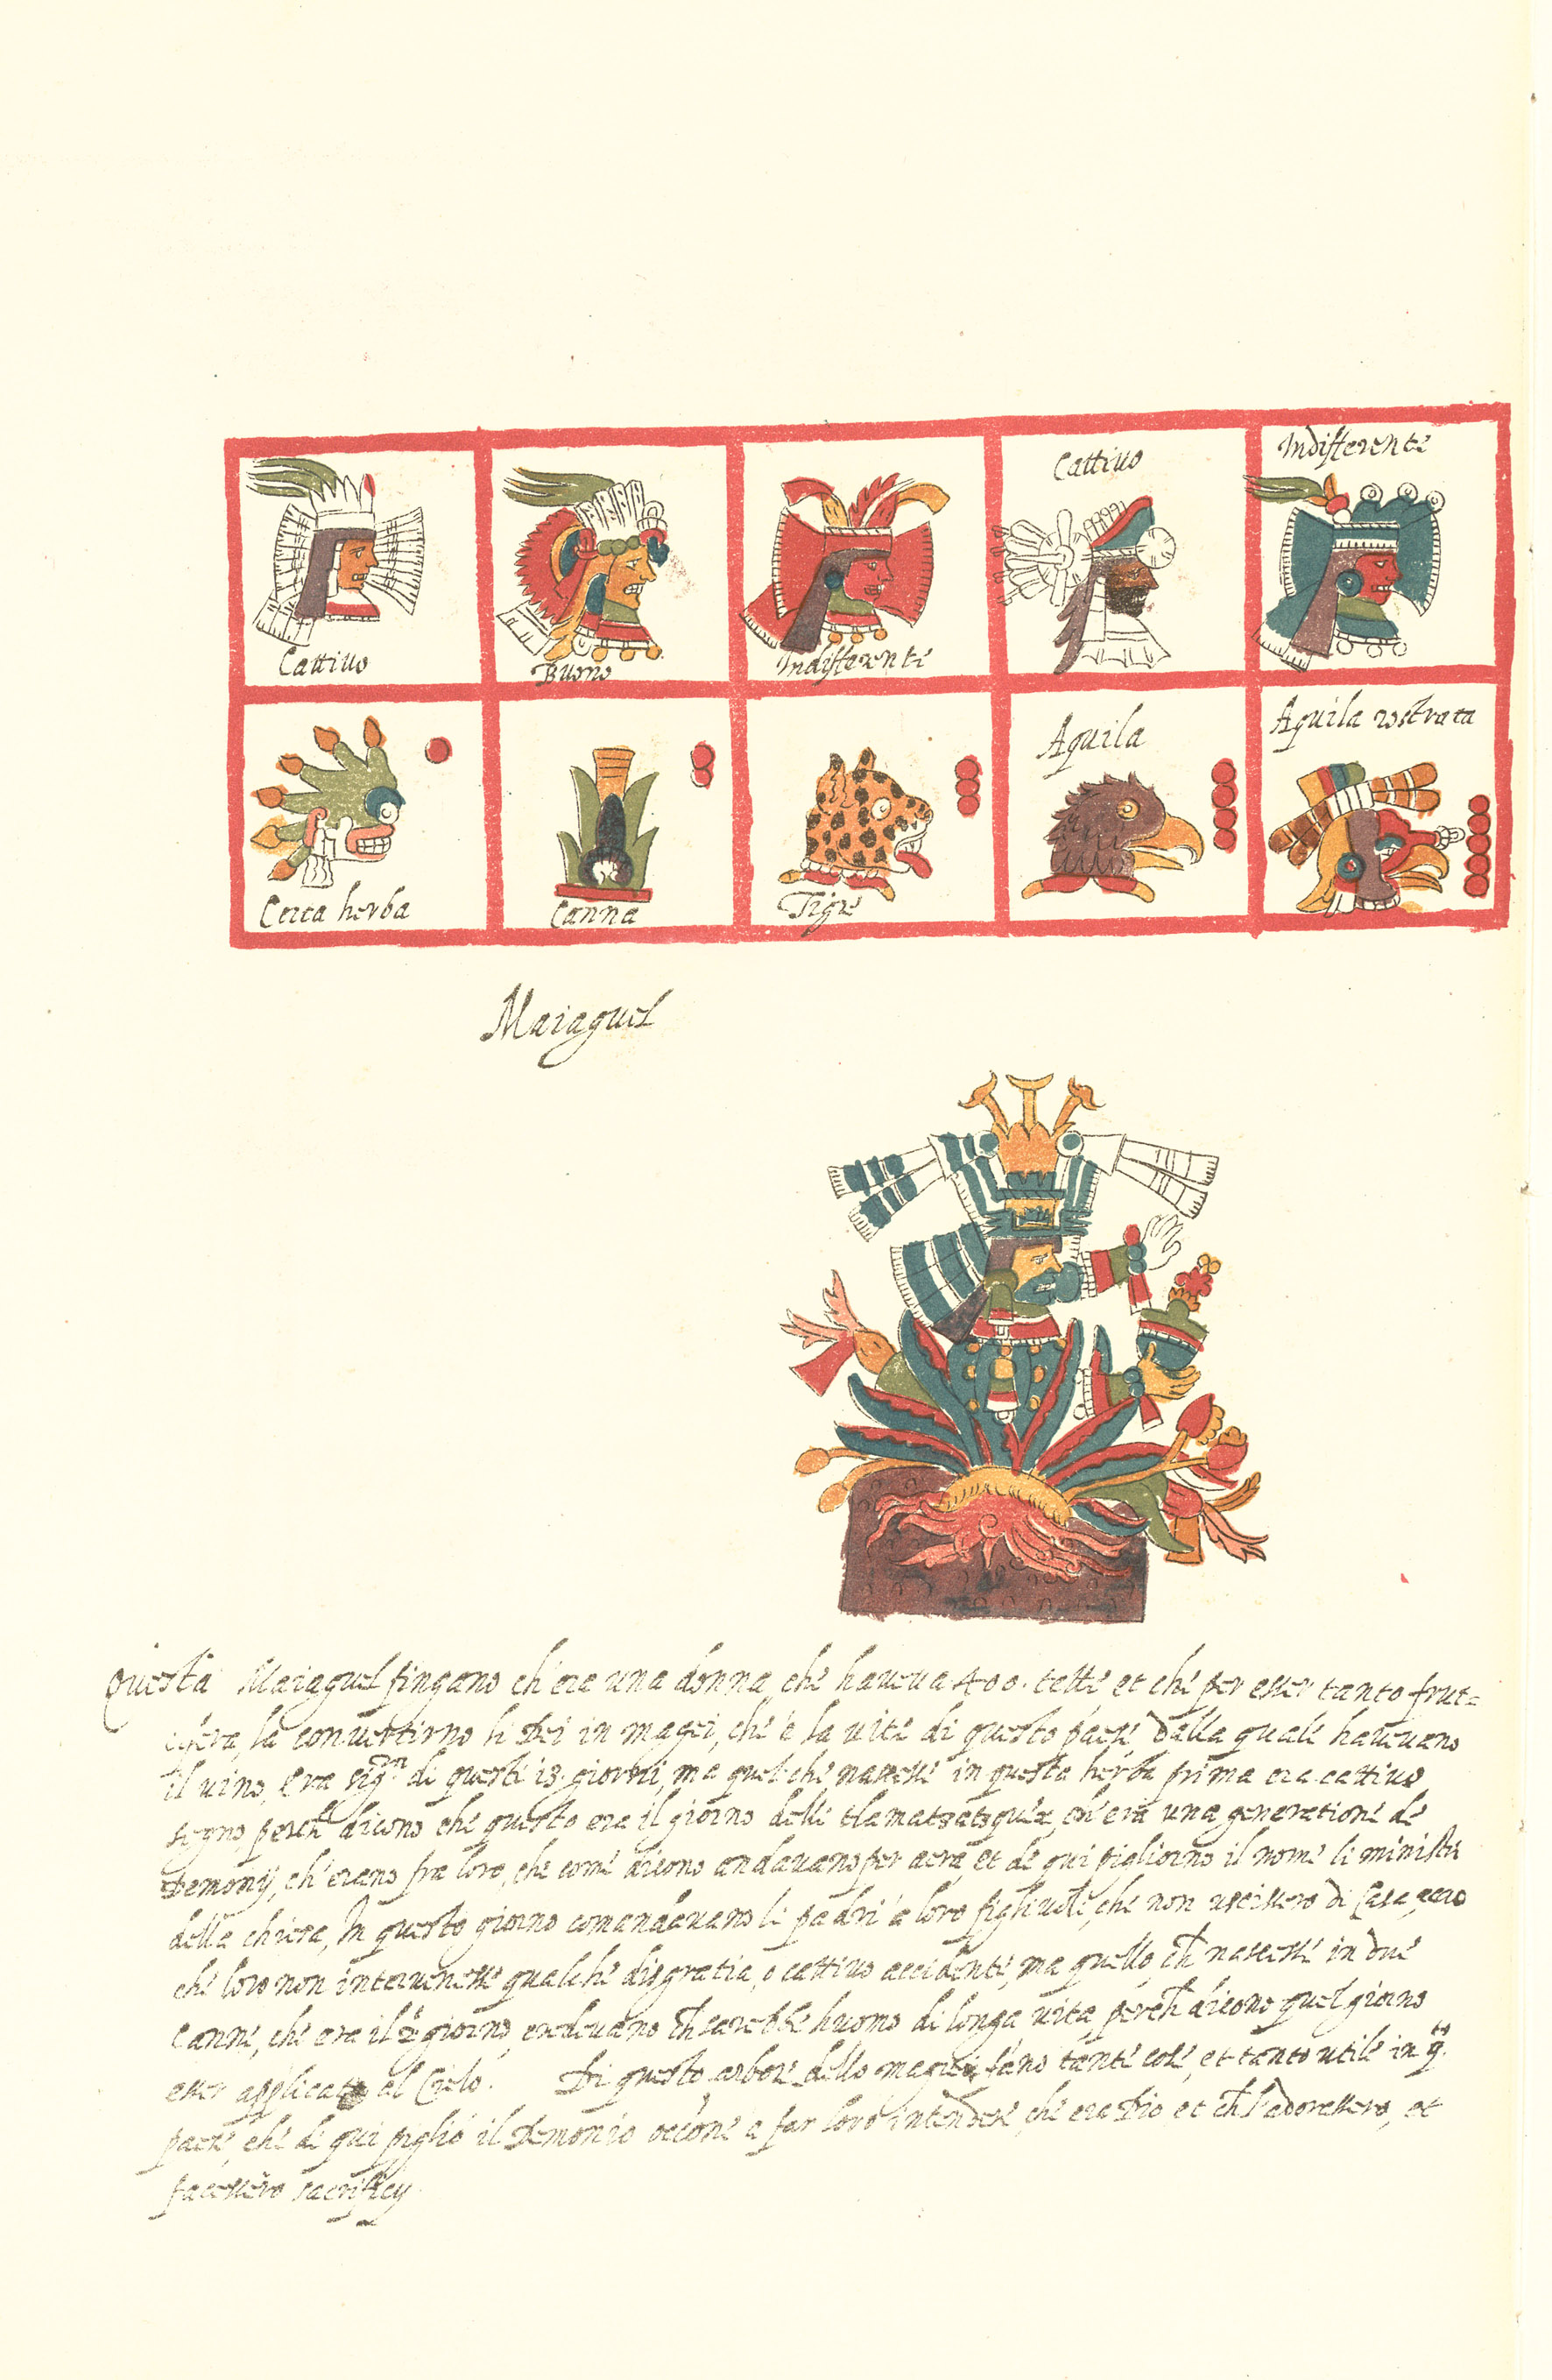 Cattiuo
Buono
Indifferente
Cattiuo
Indifferente
Certa herba
Canna
Tigre
Aquila
Aquila rostrata
Maiaguel
Questa Maiaguel fingano ch'era una donna che haueua 400. tette et che per esser tanto frut=
la conuertirno li Dei in magei, che è la uite di questo paese dalla quale haueuano
il uino, era di questi 13. giorni, ma quel che nascesse in questa herba prima era cattiuo
segno, dicono che questo era il giorno delli ch'era una generatione de
Demonij, ch'erano fra loro, che come dicono andauano per aera, et de qui pigliorno il nome li ministri
della chiesa, In questo giorno comandauano li padri a loro figliuoli, che non uscissero di Casa,
che loro non interuenesse qualche disgratia, o cattiuo accidente, ma quello, ch nascesse in due
Canne, che era il 2 giorno, credeuano ch sarebbe huomo di longa uita, perch dicono quel giorno
esser applicato al Cielo. Di questo arbore dello fano tante cose, et tanto utile in
paese, che de qui piglio il Demonio a far loro intendere, che era Dio et ch l'adorassero, et
facessero sacrificij.